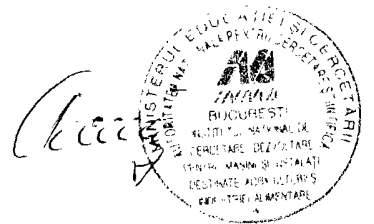 MINISTERUL EDUCAȚIEI ȘI CERCETĂRII
AUTORITATEA NAȚIONALĂ PENTRU CERCETARE ȘTIINȚIFICĂ
INMA
BUCUREȘTI
INSTITUTUL NAȚIONAL DE
CERCETARE DEZVOLTARE
PENTRU MAȘINI ȘI INSTALAȚII
DESTINATE AGRICULTURII ȘI
INDUSTRIEI ALIMENTARE